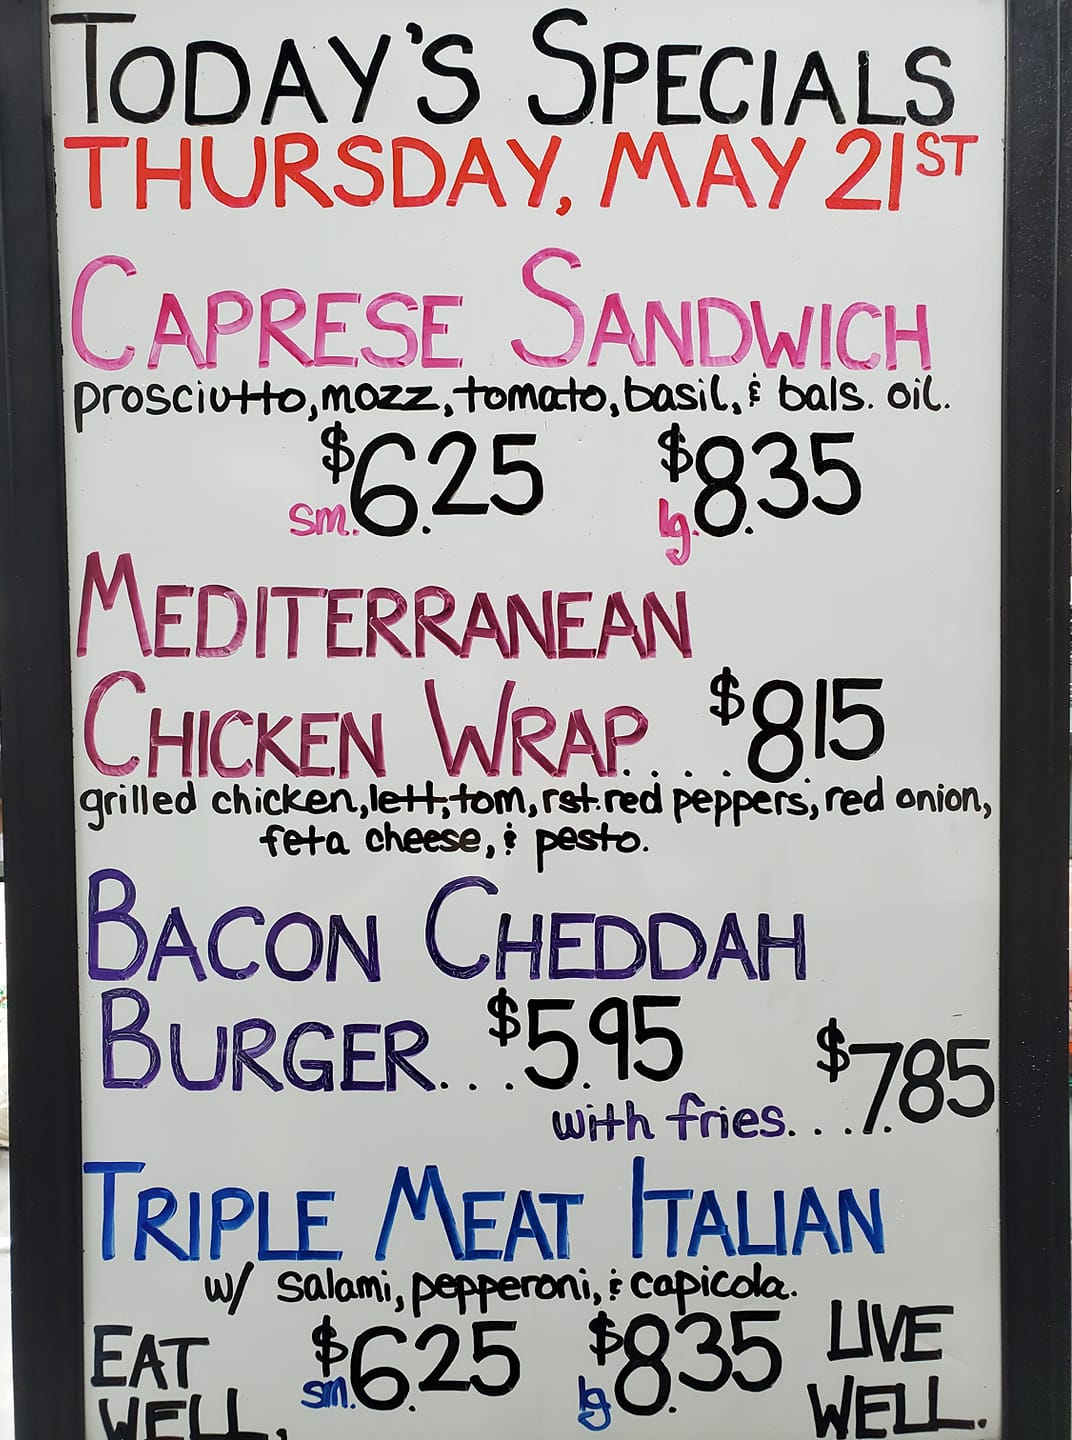 TODAY'S SPECIALS
THURSDAY, MAY 21ST
CAPRESE SANDWICH
prosciutto, mozz, tomato, basil, & bals. oil.
sm. $6.25 lg. $8.35
MEDITERRANEAN
CHICKEN WRAP.... $815
grilled chicken, lett, tom, rst. red peppers, red onion,
feta cheese, & pesto.
BACON CHEDDAH
BURGER... $5.95
with fries.... $7.85
TRIPLE MEAT ITALIAN
w/ salami, pepperoni, & capicola.
sm. $6.25 lg $8.35
EAT
WELL.
LIVE
WELL.